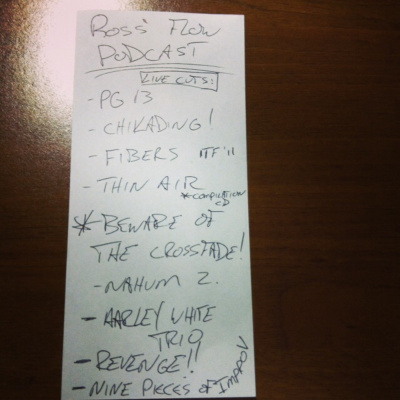 BOSS' FLOW
PODCAST
LIVE CUTS:
- PG 13
- CHIKADING!
- FIBERS ITF '11
- THIN AIR
*-COMPILATION
CD
* BEWARE OF
THE CROSSFADE!
- NAHUM Z.
- HARLEY WHITE
TRIO
- REVENGE!!
- NINE PIECES OF IMPROV